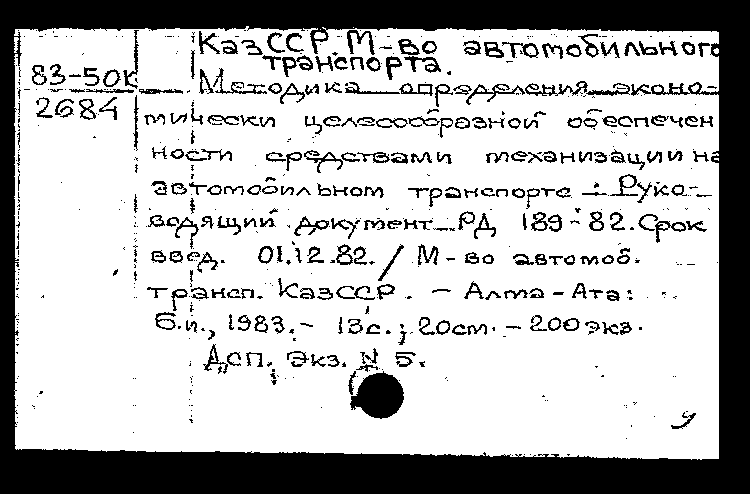 КазССР. М-во автомобильного
транспорта.
83-50К
Методика определения эконо-
2684
мически целесообразной обеспечен
ности средствами механизации на
автомобильном транспорте : Руко-
водящий документ РД 189-82. Срок
введ. 01.12.82. / М-во автомоб.
трансп. КазССР. - Алма-Ата:
б.и., 1983. - 13с.; 20см. - 200 экз.
ДСП. Экз. N 5.